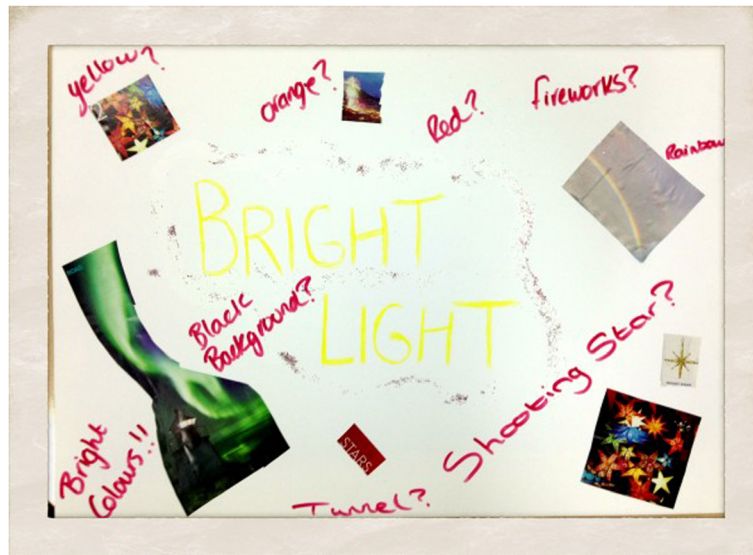 yellow?
orange?
Red?
fireworks?
Rainbow
BRIGHT
LIGHT
Black
Background?
Shooting Star?
Bright
Colours!!
STARS
Tunnel?